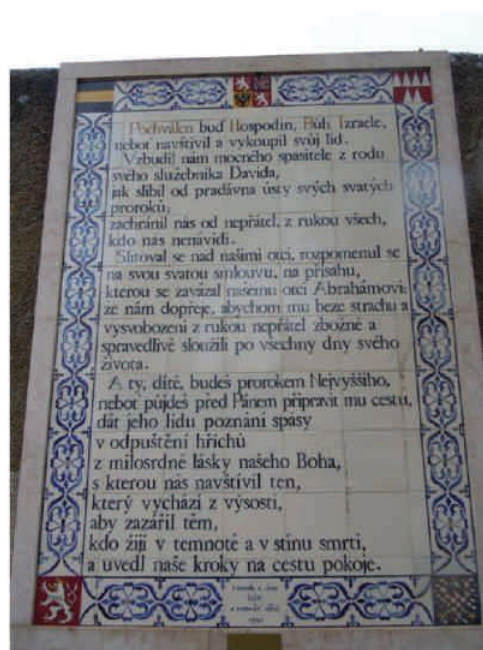 Pochválen buď Hospodin, Bůh Izraele,
neboť navštívil a vykoupil svůj lid.
Vzbudil nám mocného spasitele z rodu
svého služebníka Davida,
jak slíbil od pradávna ústy svých svatých
proroků;
zachránil nás od nepřátel, z rukou všech,
kdo nás nenávidí.
Slitoval se nad našimi otci, rozpomenul se
na svou svatou smlouvu, na přísahu,
kterou se zavázal našemu otci Abrahámovi:
že nám dopřeje, abychom mu beze strachu a
vysvobozeni z rukou nepřátel zbožně a
spravedlivě sloužili po všechny dny svého
života.
A ty, dítě, budeš prorokem Nejvyššího,
neboť půjdeš před Pánem připravit mu cestu,
dát jeho lidu poznání spásy
v odpuštění hříchů
z milosrdné lásky našeho Boha,
s kterou nás navštívil ten,
který vychází z výsosti,
aby zazářil těm,
kdo žijí v temnotě a v stínu smrti,
a uvedl naše kroky na cestu pokoje.